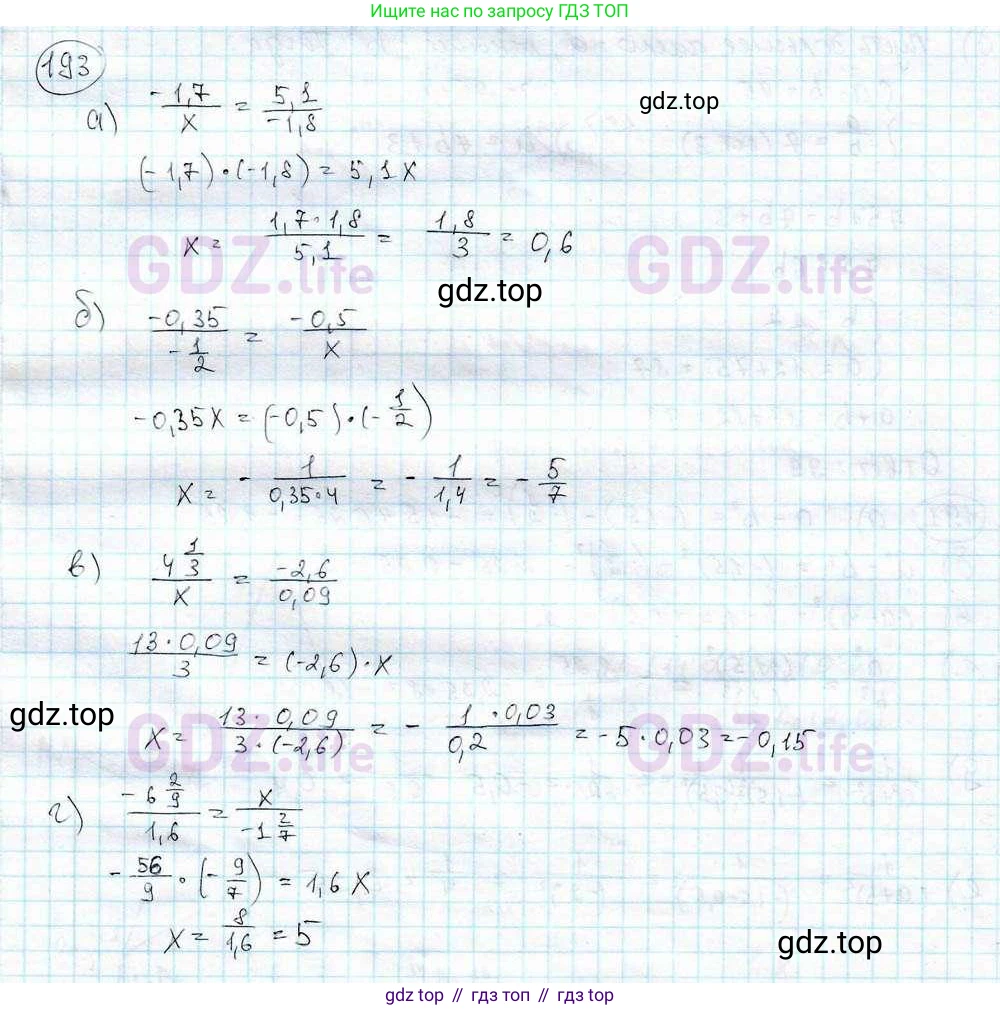 Ищите ответы по запросу ГДЗ ТОП
193
gdz.top
а) -1,7/x = 5,1/-1,8
(-1,7)·(-1,8) = 5,1x
x = 1,7·1,8/5,1 = 1,8/3 = 0,6
GDZ.life GDZ.life
gdz.top
б) -0,35/-1/2 = -0,5/x
-0,35x = (-0,5)·(-1/2)
x = -1/0,35·4 = -1/1,4 = -5/7
в) 4 1/3/x = -2,6/0,09
13·0,09/3 = (-2,6)·x
gdz.top
x = 13·0,09/3·(-2,6) = -1·0,03/0,2 = -5·0,03 = -0,15
GDZ.life GDZ.life
г) -6 2/9/1,6 = x/-1 2/7
-56/9·(-9/7) = 1,6x
x = 8/1,6 = 5
gdz.top
gdz top // гдз топ // gdz top